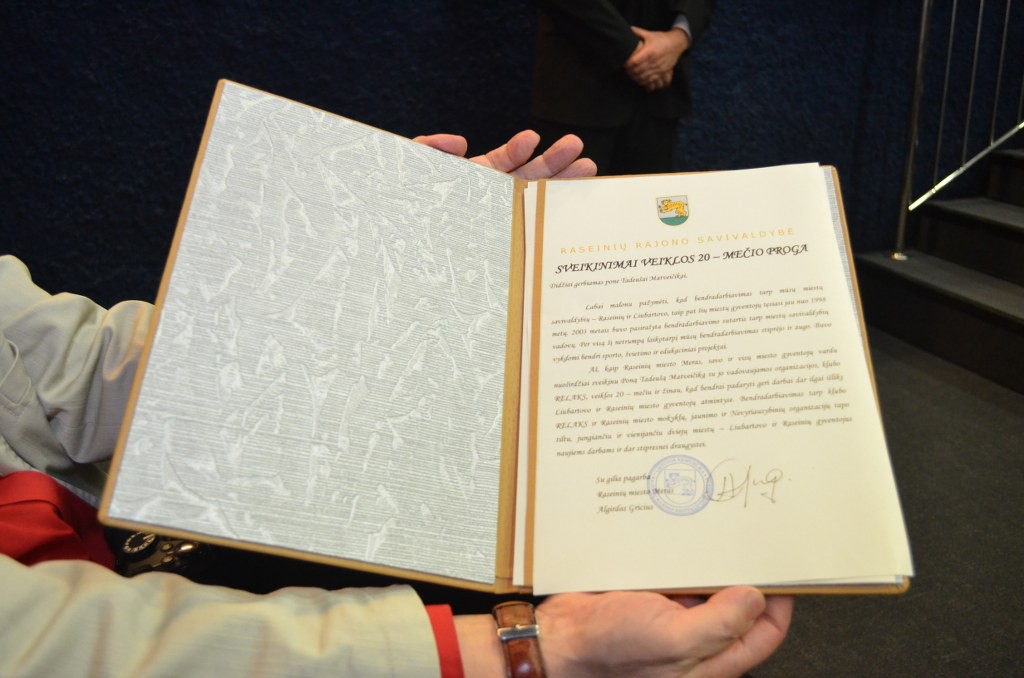 RASEINIŲ RAJONO SAVIVALDYBĖ
SVEIKINIMAI VEIKLOS 20 – MEČIO PROGA
Didžiai gerbiamas pone Tadeušai Matveičikai,
Labai malonu pažymėti, kad bendradarbiavimas tarp mūsų miestų
savivaldybių – Raseinių ir Liubartovo, taip pat šių miestų gyventojų tęsiasi jau nuo 1998
metų. 2001 metais buvo pasirašyta bendradarbiavimo sutartis tarp miestų savivaldybių
vadovų. Per visą šį netrumpą laikotarpį mūsų bendradarbiavimas stiprėjo ir augo. Buvo
vykdomi bendri sporto, švietimo ir edukaciniai projektai.
Aš, kaip Raseinių miesto Meras, savo ir visų miesto gyventojų vardu
nuoširdžiai sveikinu Poną Tadeušą Matveičiką su jo vadovaujamos organizacijos, klubo
RELAKS, veiklos 20 – mečiu ir žinau, kad bendrai padaryti geri darbai dar ilgai išliks
Liubartovo ir Raseinių miesto gyventojų atmintyse. Bendradarbiavimas tarp klubo
RELAKS ir Raseinių miesto mokyklų, jaunimo ir Nevyriausybinių organizacijų tapo
tiltu, jungiančiu ir vienijančiu dviejų miestų – Liubartovo ir Raseinių gyventojus
naujiems darbams ir dar stipresnei draugystei.
Su gilia pagarba
Raseinių miesto Meras
Algirdas Gricius